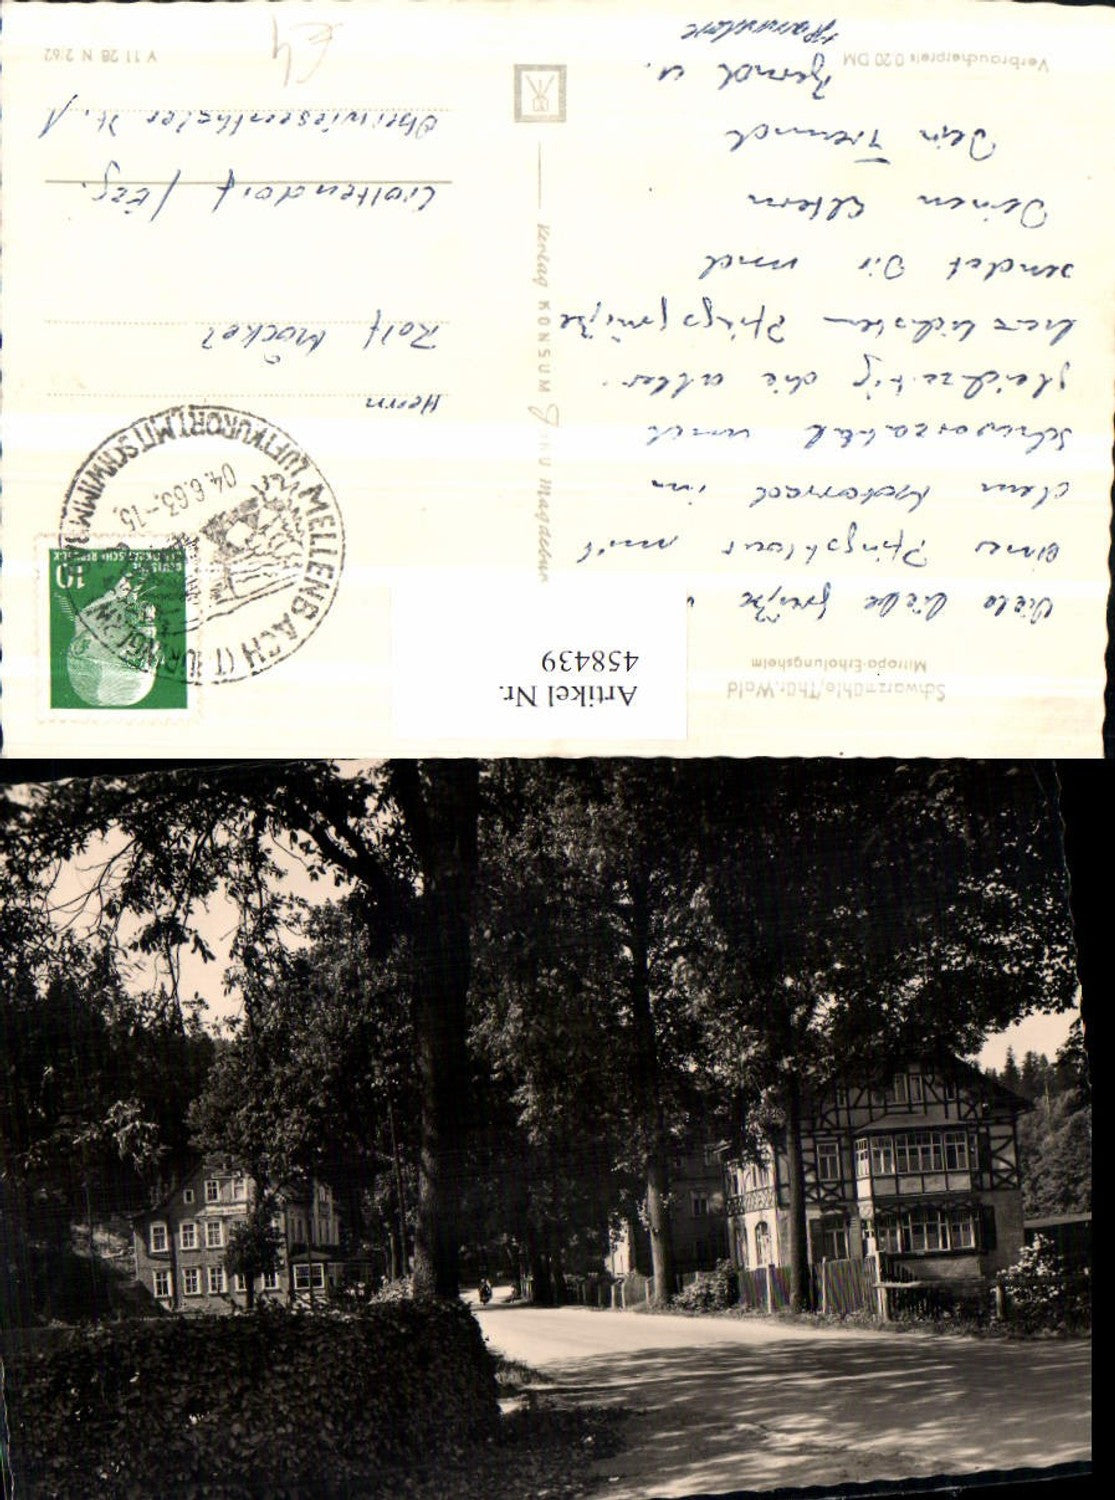 Schwarzmühle/Thür. Wald
Mitropa-Erholungsheim
Viele liebe Grüße
einer Pfingsttour mit
dem Motorrad im
Schwarzatal und
gleichzeitig die aller-
herzlichsten Pfingstgrüße
sendet Dir und
Deinen Eltern
Dein Freund
Bernd u.
Verbraucherpreis 0.20 DM
Verlag KONSUM Foto Magdeburg
Artikel Nr.
458439
MELLENBACH (THÜRINGEN)
LUFTKURORT MIT SCHWIMMBAD
04.6.63.-15
10
DEUTSCHE
DEMOKRATISCHE REPUBLIK
Herrn
Rolf Möckel
/Erzg.
Oberwiesenthaler St. 1
V 11 28 N 2/62